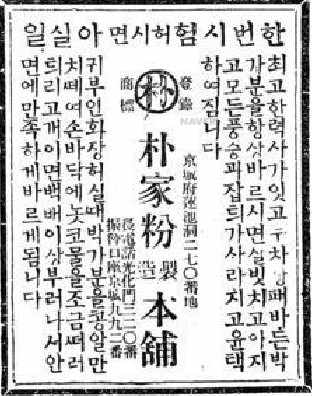 한번시험허시면아실일
최고한력사가잇고두차상패바든박
가분을항상바르시면살빗치고아지
고모든풍승과잡틔가사라지고윤택
하여짐니다
登錄
朴
商標
京城府蓮池洞二七〇番地
朴家粉
製造
本舖
電話光化門三二〇番
振替口座京城九九二番
귀부인화장허실때박가분을콩알만
치떼여손바닥에놋코물을조금떠러
틔리고개이면백배이상부러나서안
면에만족하게바르게됩니다
NAVER